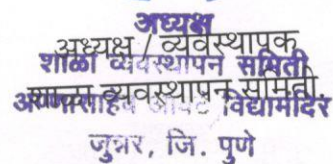 अध्यक्ष
अध्यक्ष / व्यवस्थापक
शाळा व्यवस्थापन समिती
शाळा व्यवस्थापन समिती
अण्णासाहेब आवटे विद्यामंदिर
जुन्नर, जि. पुणे